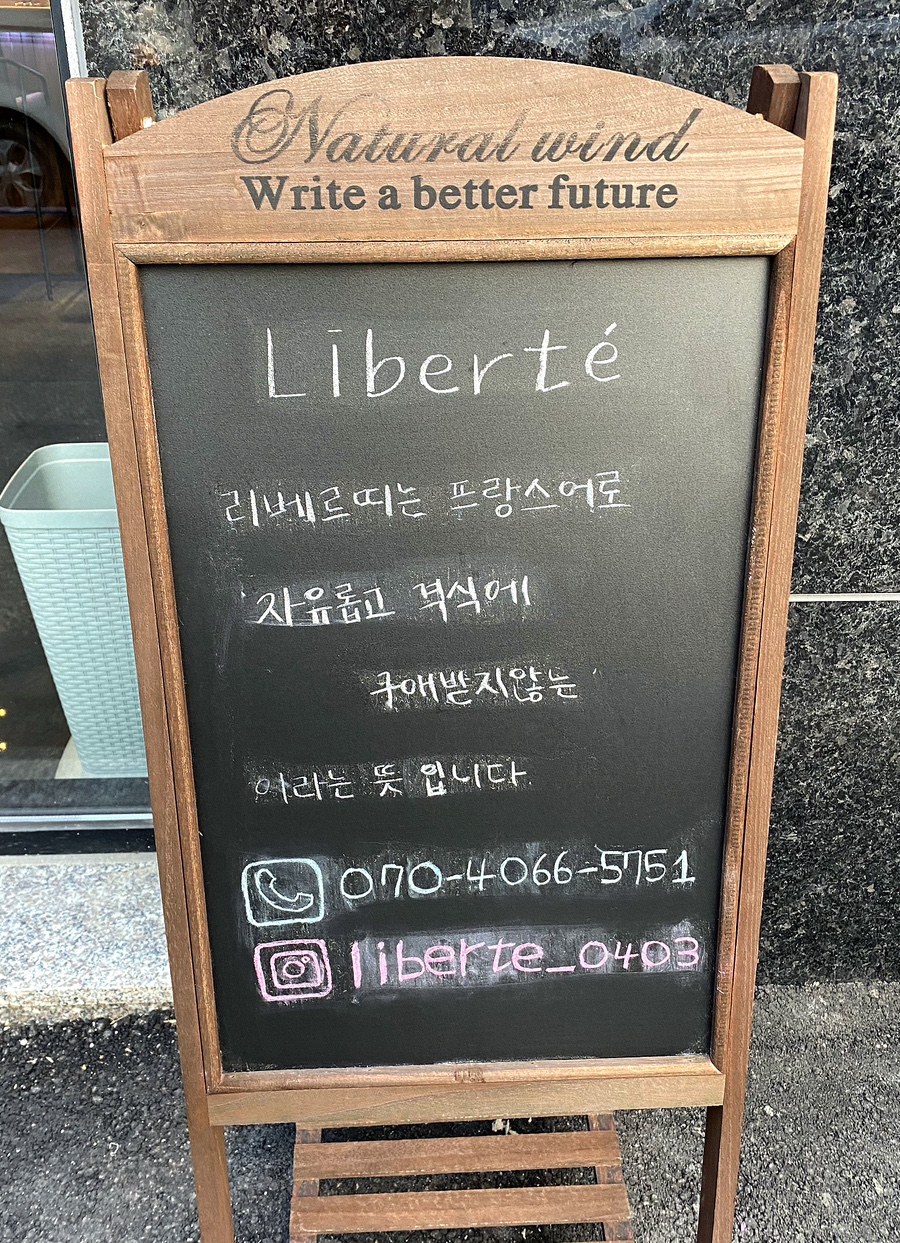 Natural wind
Write a better future
Liberté
리베르띠는 프랑스어로
'자유롭고 격식에
구애받지않는'
이라는 뜻 입니다.
070-4066-5751
liberte_0403